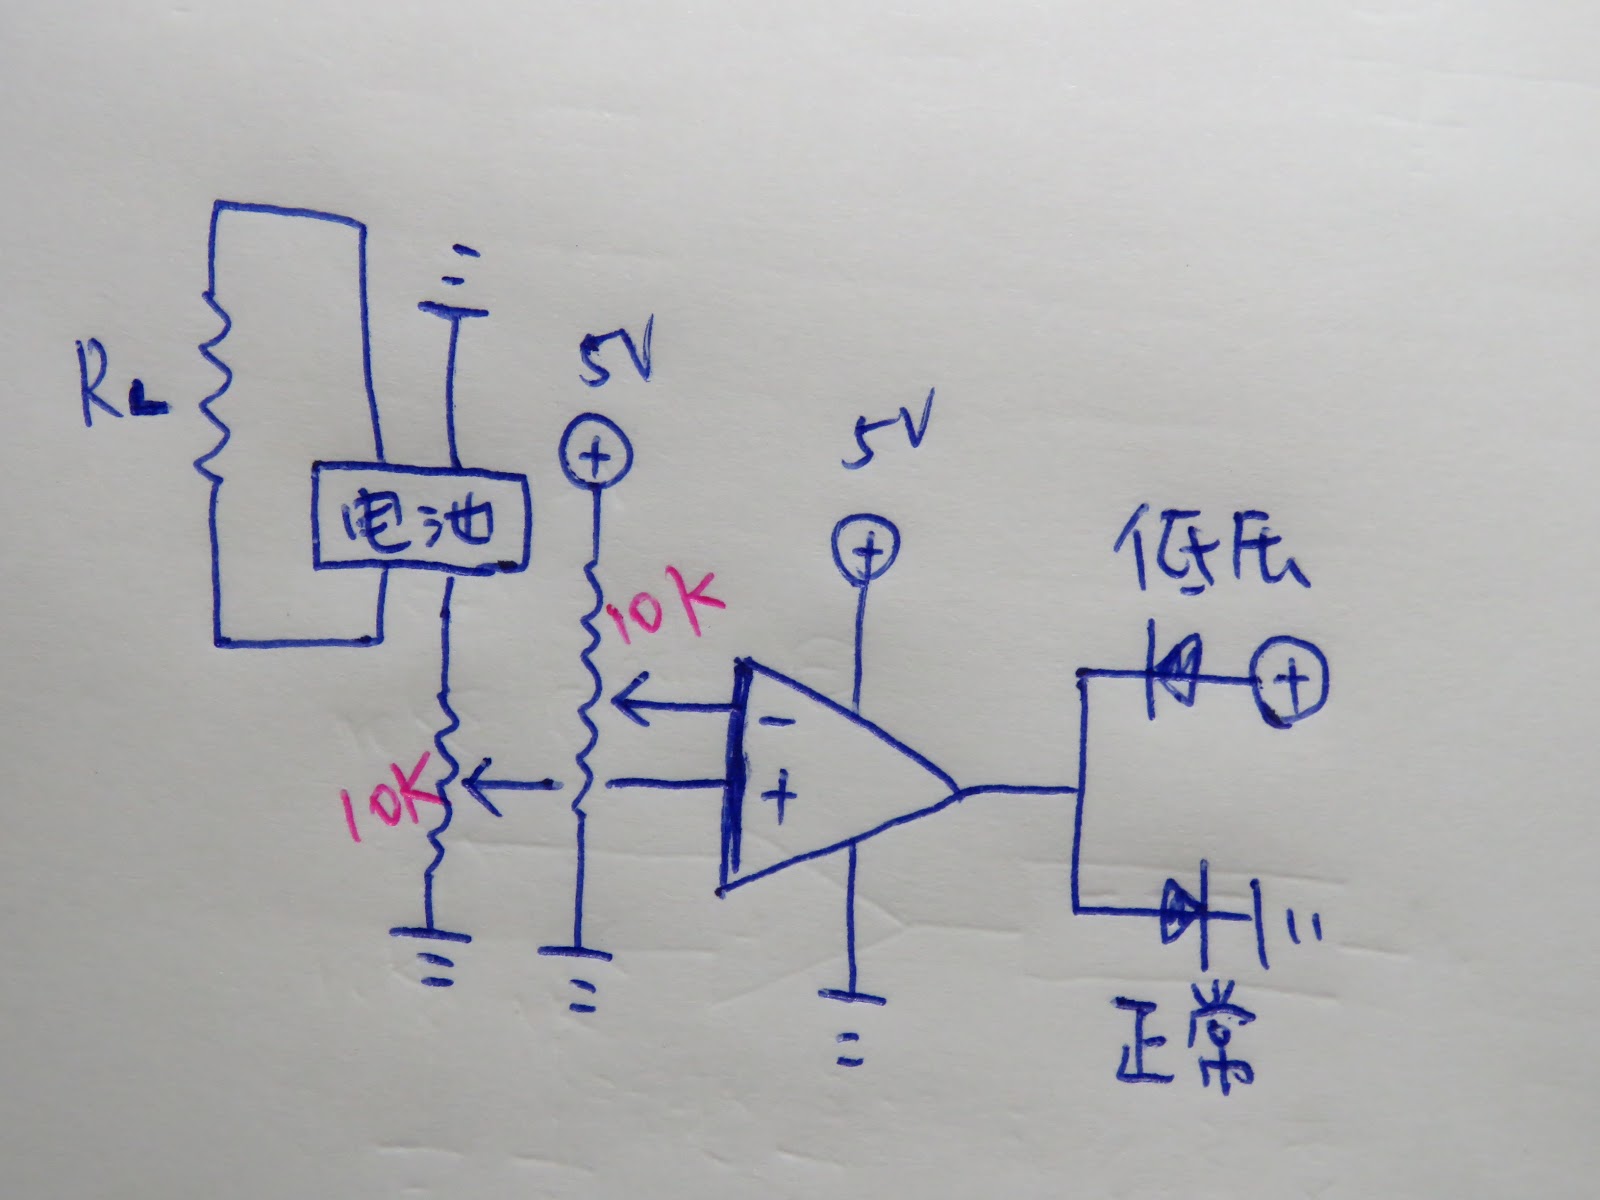 RL
5V
5V
电池
低压
10K
10K
+
+
+
-
+
正常